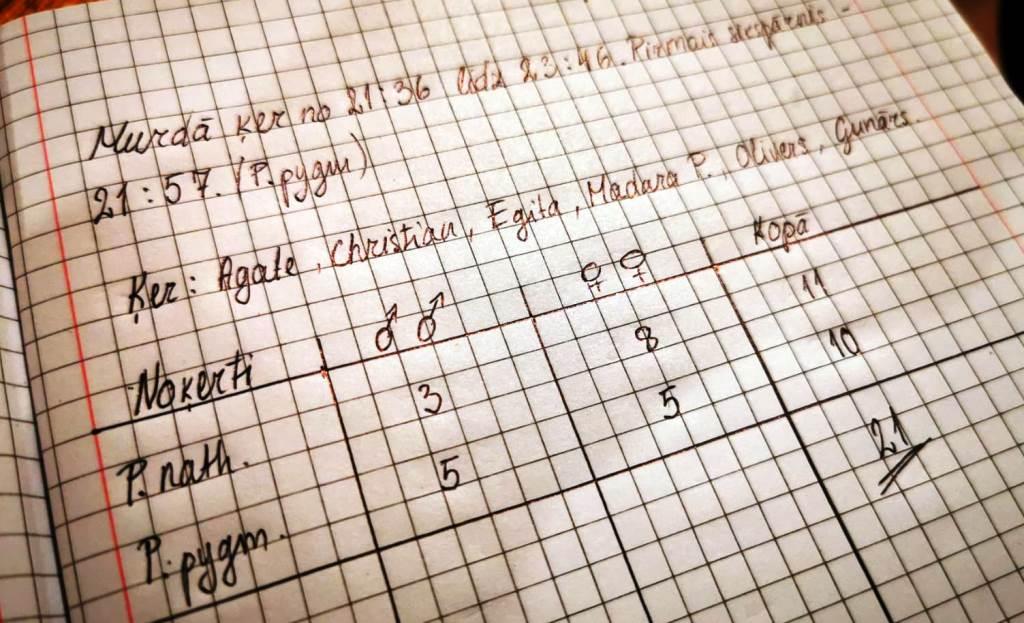 Murdā ķer no 21:36 līdz 23:46. Pirmais sikspārnis -
21:57. (P. pygm)
Ķer: Agate, Christian, Egita, Madara P., Olivers, Gunārs.
Noķerti ♂♂ ♀♀ Kopā
P. nath. 3 8 11
P. pygm. 5 5 10
21